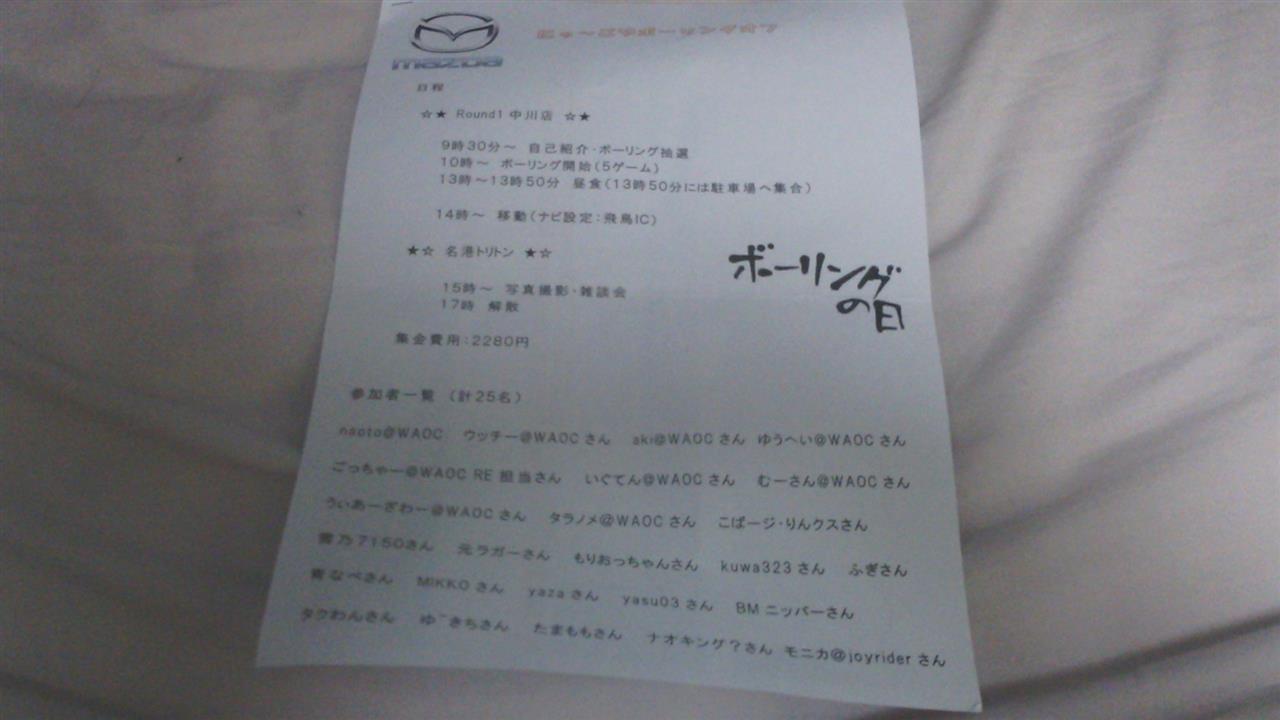 mazda
日程
☆★ Round1 中川店 ☆★
9時30分～ 自己紹介・ボーリング抽選
10時～ ボーリング開始(5ゲーム)
13時～13時50分 昼食(13時50分には駐車場へ集合)
14時～ 移動(ナビ設定：飛鳥IC)
★☆ 名港トリトン ★☆
15時～ 写真撮影・雑談会
17時 解散
ボーリング
の日
集金費用：2280円
参加者一覧 (計25名)
naoto@WAOC ウッチー@WAOCさん aki@WAOCさん ゆうへい@WAOCさん
ごっちゃー@WAOC RE担当さん いぐてん@WAOCさん むーさん@WAOCさん
うぃあーざわー@WAOCさん タラノメ@WAOCさん こばージ・りんクスさん
雪乃7150さん 元ラガーさん もりおっちゃんさん kuwa323さん ふぎさん
青なべさん MIKKOさん yazaさん yasu03さん BMニッパーさん
タクわんさん ゆ～きちさん たまももさん ナオキング？さん モニカ@joyriderさん